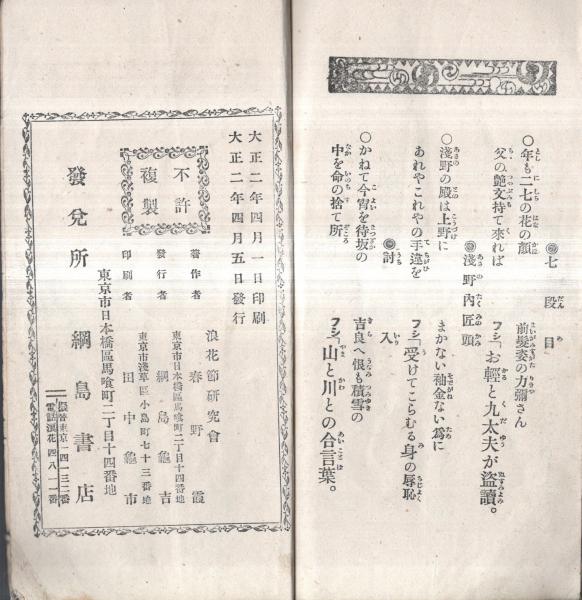 ◎七段目
○年も二七の花の顔
前髪姿の力彌さん
父の艶文持て來れば
フシ「お輕と九太夫が盜讀。
◎淺野内匠頭
○淺野の殿は上野に
まかない秞金ない爲に
あれやこれやの手違を
フシ「受けてこらむる身の辱恥
◎討入
○かねて今宵を待坂の
吉良へ恨も積雪の
中を命の捨て所
フシ「山と川との合言葉。
大正二年四月一日印刷
大正二年四月五日發行
不許
複製
著作者
浪花節研究會
春野霞
東京市日本橋區馬喰町二丁目十四番地
發行者
綱島龜吉
東京市淺草區小島町七十三番地
印刷者
田中龜市
東京市日本橋區馬喰町二丁目十四番地
發兌所
綱島書店
振替東京一四一三二番
電話浪花四八一一番